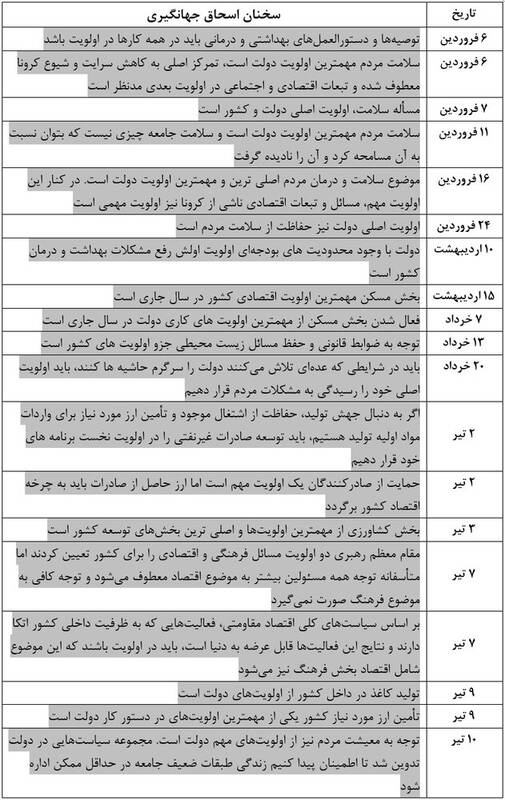 تاریخ
سخنان اسحاق جهانگیری
۶ فروردین
توصیه‌ها و دستورالعمل‌های بهداشتی و درمانی باید در همه کارها در اولویت باشد
۶ فروردین
سلامت مردم مهمترین اولویت دولت است، تمرکز اصلی به کاهش سرایت و شیوع کرونا
معطوف شده و تبعات اقتصادی و اجتماعی در اولویت بعدی مدنظر است
۷ فروردین
مسأله سلامت، اولویت اصلی دولت و کشور است
۱۱ فروردین
سلامت مردم مهمترین اولویت دولت است و سلامت جامعه چیزی نیست که بتوان نسبت
به آن مسامحه کرد و آن را نادیده گرفت
۱۶ فروردین
موضوع سلامت و درمان مردم اصلی ترین و مهمترین اولویت دولت است. در کنار این
اولویت مهم، مسائل و تبعات اقتصادی ناشی از کرونا نیز اولویت مهمی است
۲۴ فروردین
اولویت اصلی دولت نیز حفاظت از سلامت مردم است
۱۰ اردیبهشت
دولت با وجود محدودیت های بودجه‌ای اولویت اولش رفع مشکلات بهداشت و درمان
کشور است
۱۵ اردیبهشت
بخش مسکن مهمترین اولویت اقتصادی کشور در سال جاری است
۷ خرداد
فعال شدن بخش مسکن از مهمترین اولویت های کاری دولت در سال جاری است
۱۳ خرداد
توجه به ضوابط قانونی و حفظ مسائل زیست محیطی جزو اولویت های کشور است
۲۰ خرداد
باید در شرایطی که عده‌ای تلاش می‌کنند دولت را سرگرم حاشیه ها کنند، باید اولویت
اصلی خود را رسیدگی به مشکلات مردم قرار دهیم
۲ تیر
اگر به دنبال جهش تولید، حفاظت از اشتغال موجود و تأمین ارز مورد نیاز برای واردات
مواد اولیه تولید هستیم، باید توسعه صادرات غیرنفتی را در اولویت نخست برنامه های
خود قرار دهیم
۲ تیر
حمایت از صادرکنندگان یک اولویت مهم است اما ارز حاصل از صادرات باید به چرخه
اقتصاد کشور برگردد
۳ تیر
بخش کشاورزی از مهمترین اولویت‌ها و اصلی ترین بخش‌های توسعه کشور است
۷ تیر
مقام معظم رهبری دو اولویت مسائل فرهنگی و اقتصادی را برای کشور تعیین کردند اما
متأسفانه توجه همه مسئولین بیشتر به موضوع اقتصاد معطوف می‌شود و توجه کافی به
موضوع فرهنگ صورت نمی‌گیرد
۷ تیر
بر اساس سیاست‌های کلی اقتصاد مقاومتی، فعالیت‌هایی که به ظرفیت داخلی کشور اتکا
دارند و نتایج این فعالیت‌ها قابل عرضه به دنیا است، باید در اولویت باشند که این موضوع
شامل اقتصاد بخش فرهنگ نیز می‌شود
۹ تیر
تولید کاغذ در داخل کشور از اولویت‌های دولت است
۹ تیر
تأمین ارز مورد نیاز کشور یکی از مهمترین اولویت‌های در دستور کار دولت است
۱۰ تیر
توجه به معیشت مردم نیز از اولویت‌های مهم دولت است. مجموعه سیاست‌هایی در دولت
تدوین شد تا اطمینان پیدا کنیم زندگی طبقات ضعیف جامعه در حداقل ممکن اداره
شود